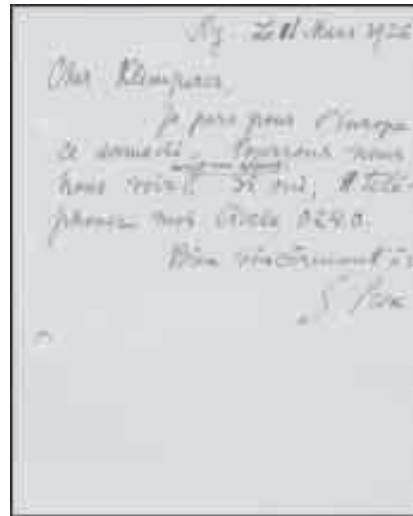 NY Le 11 Mars 1926
Cher Klemperer,
je pars pour l'Europe
ce samedi. Pourrons nous
nous voir? Si oui, télé-
phonez moi Circle 0240.
Bien sincèrement